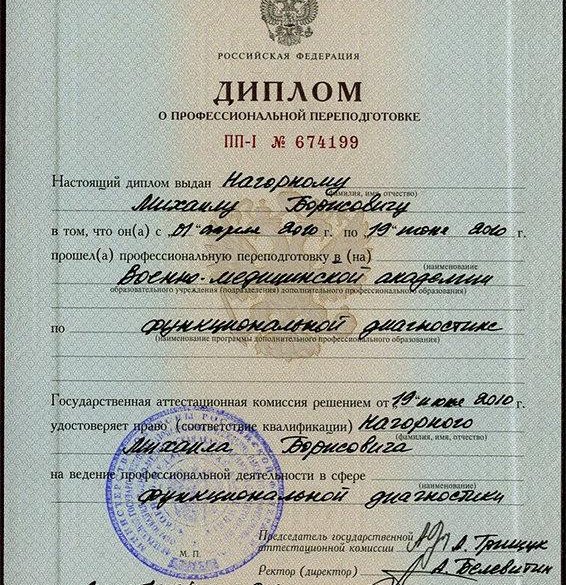 РОССИЙСКАЯ ФЕДЕРАЦИЯ
ДИПЛОМ
О ПРОФЕССИОНАЛЬНОЙ ПЕРЕПОДГОТОВКЕ
ПП-I № 674199
Настоящий диплом выдан Нагорному
(фамилия, имя, отчество)
Михаилу Борисовичу
в том, что он(а) с „01“ апреля 2010 г. по „19“ июня 2010 г.
прошел(а) профессиональную переподготовку в (на)
(наименование
Военно-медицинской академии
образовательного учреждения (подразделения) дополнительного профессионального образования)
по функциональной диагностике
(наименование программы дополнительного профессионального образования)
Государственная аттестационная комиссия решением от „19“ июня 2010 г.
удостоверяет право (соответствие квалификации) Нагорного
(фамилия, имя, отчество)
Михаила Борисовича
на ведение профессиональной деятельности в сфере
(наименование)
функциональной диагностики
Председатель государственной
аттестационной комиссии А. Грищук
Ректор (директор) А. Белевитин
М. П.